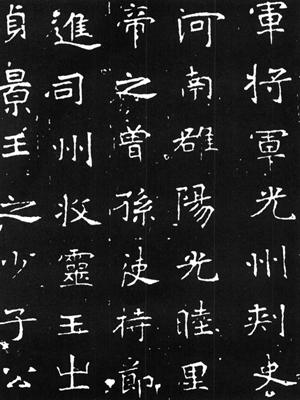 軍將軍光州刾史
河南雒陽光睦里
帝之曾孫使持節
進司州牧靈王
貞景王之少子公